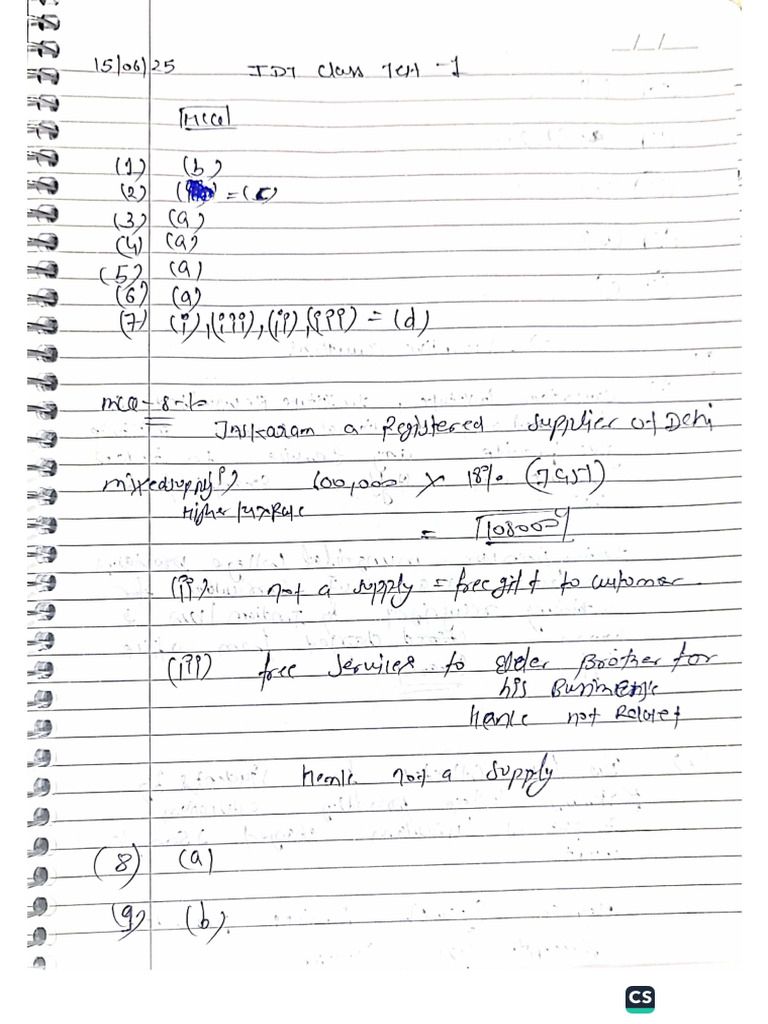 _/_/__
15/06/25 IDT Class Test -1
MCQ
(1) (b)
(2) = (c)
(3) (a)
(4) (a)
(5) (a)
(6) (a)
(7) (i), (iii), (ii), (iii) = (d)
MCQ - 8
a Registered supplier of Delhi
mixed supply 600,000 x 18% (IGST)
Higher Tax Rate
= 108000
(ii) not a supply = free gift to customer.
(iii) free services to elder Brother for
his Business
hence not Related
hence not a supply
(8) (a)
(9) (b).
CS